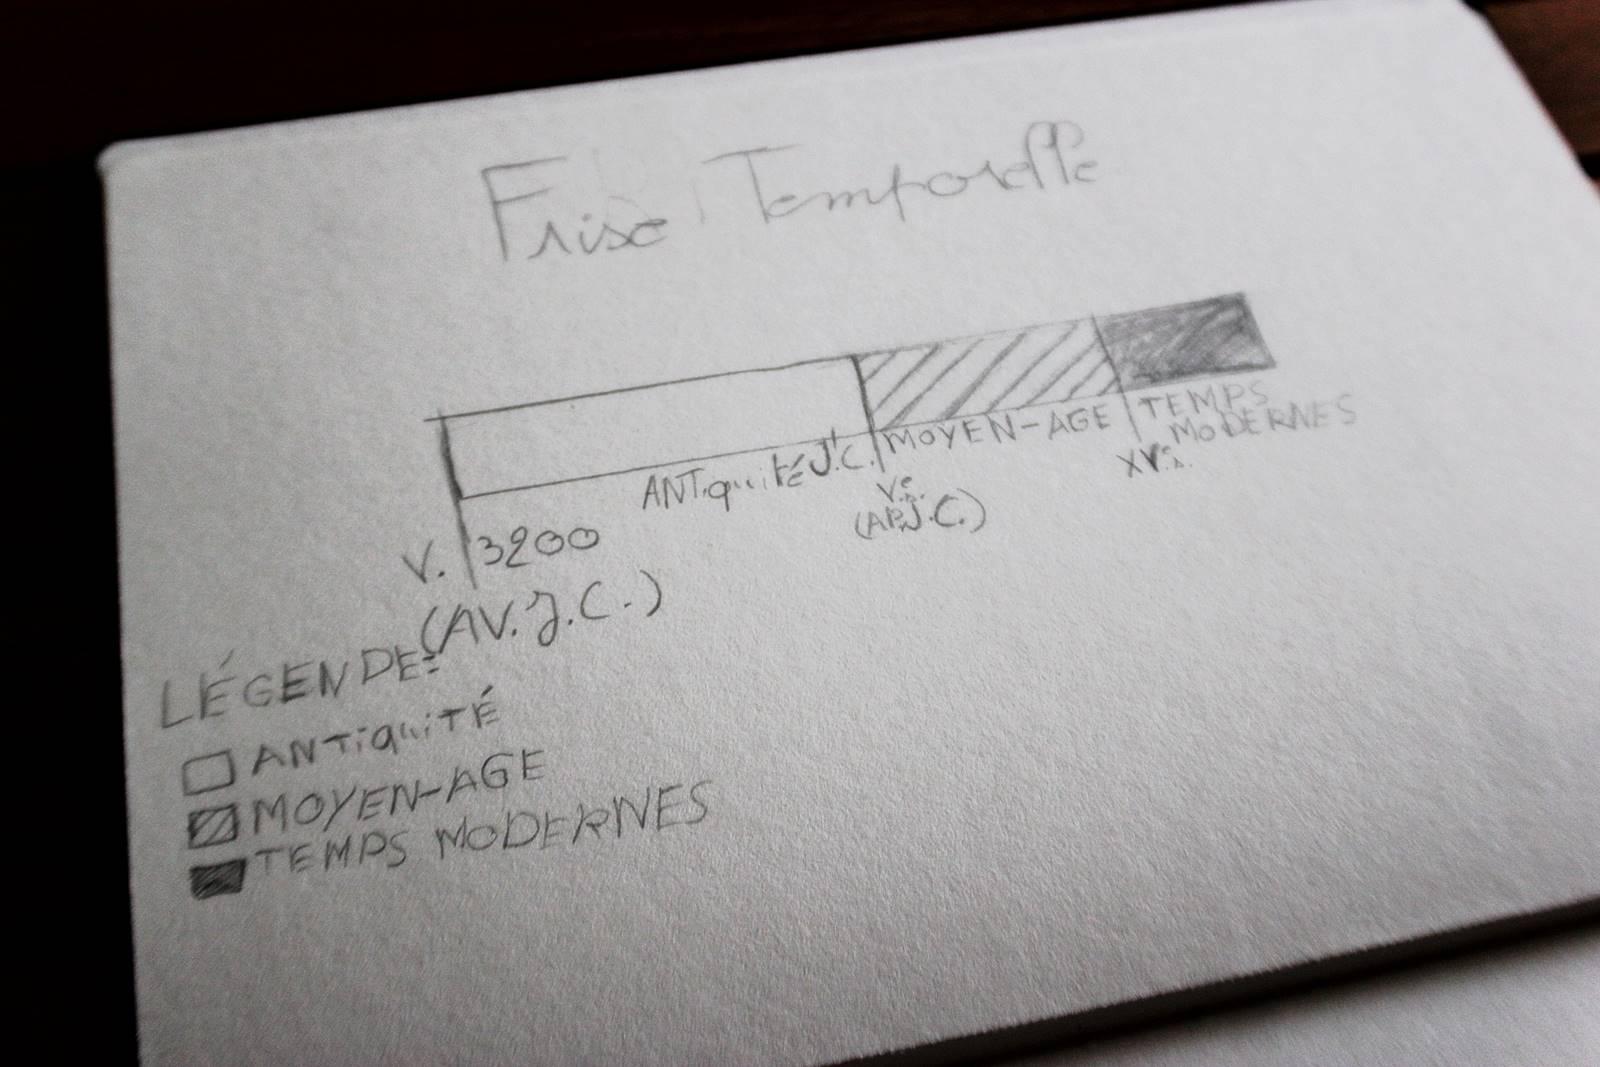 Frise Temporelle
ANTiquité J.C. MOYEN-AGE TEMPS
MODERNES
Ve s. XVe s.
(AP.J.C.)
V. 3200
(AV. J.C.)
LÉGENDE:
ANTiquiTÉ
MOYEN-AGE
TEMPS MODERNES